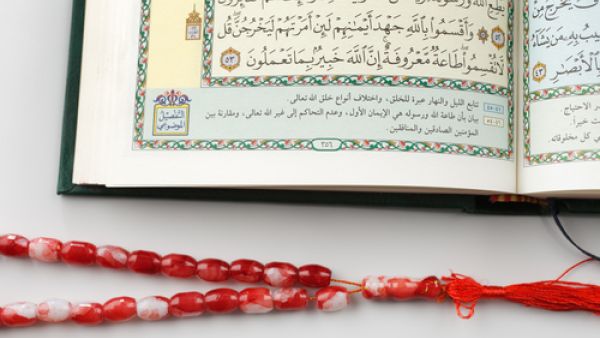 يَخْرُجُ مِنْ
بُ بِهِۦ مَن يَشَآءُ
بِٱلْأَبْصَٰرِ ٤٣
الاحتياج
خبيراً.
كل مخلوقاته.
وَأَقْسَمُوا۟ بِٱللَّهِ جَهْدَ أَيْمَٰنِهِمْ لَئِنْ أَمَرْتَهُمْ لَيَخْرُجُنَّ قُل
لَّا تُقْسِمُوا۟ طَاعَةٌ مَّعْرُوفَةٌ إِنَّ ٱللَّهَ خَبِيرٌۢ بِمَا تَعْمَلُونَ ٥٣
تتابع الليل والنهار عبرة للخلق، واختلاف أنواع خلق الله تعالى.
بيان بأن طاعة الله ورسوله هي الإيمان الأول، وعدم التحاكم إلى غير الله تعالى، ومقارنة بين
المؤمنين الصادقين والمنافقين.
التفصيل
الموضوعي
٣٥٦